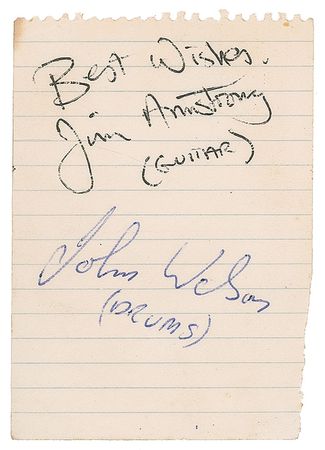 Best Wishes.
Jim Armstrong
(GUITAR)
John Wilson
(DRUMS)